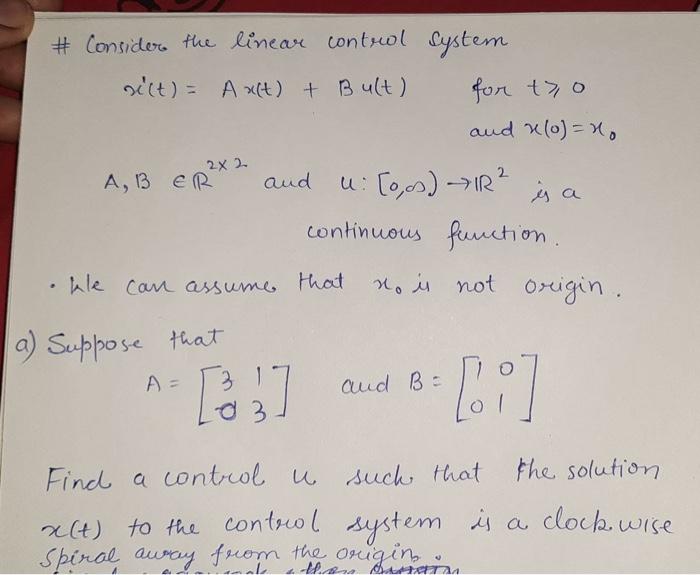 # Consider the linear control system
x'(t) = A x(t) + B u(t) for t ⩾ 0
and x(0) = x₀
A, B ∈ ℝ^{2×2} and u: [0,∞) → ℝ² is a
continuous function.
• We can assume that x₀ is not origin.
a) Suppose that
A = [3 1; 0 3] and B = [1 0; 0 1]
Find a control u such that the solution
x(t) to the control system is a clockwise
spiral away from the origin.